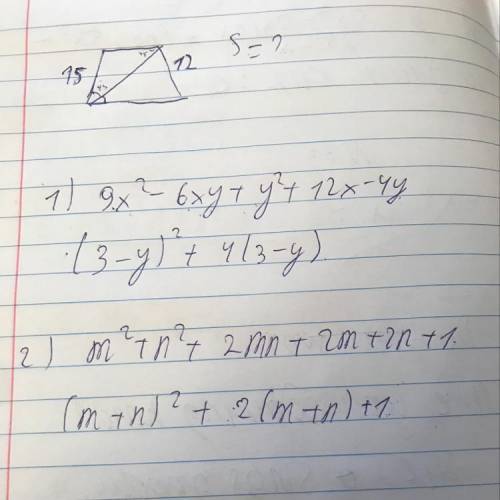 15 12 S = ?
1) 9x² - 6xy + y² + 12x - 4y
(3-y)² + 4(3-y)
2) m² + n² + 2mn + 2m + 2n + 1.
(m+n)² + 2(m+n) + 1